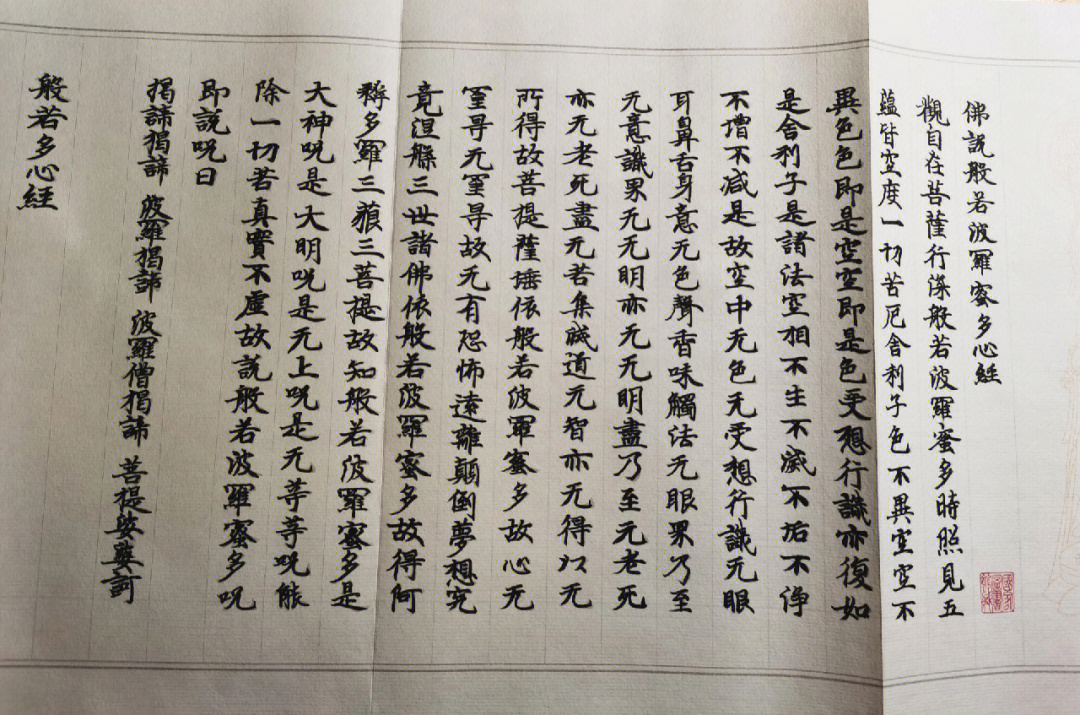 佛說般若波羅蜜多心経
觀自在菩薩行深般若波羅蜜多時照見五
蘊皆空度一切苦厄舍利子色不異空空不
異色色即是空空即是色受想行識亦復如
是舍利子是諸法空相不生不滅不垢不净
不增不减是故空中无色无受想行識无眼
耳鼻舌身意无色聲香味觸法无眼界乃至
无意識界无无明亦无无明盡乃至无老死
亦无老死盡无苦集滅道无智亦无得以无
所得故菩提薩埵依般若波羅蜜多故心无
罣导无罣导故无有恐怖遠離顛倒夢想究
竟涅槃三世諸佛依般若波羅蜜多故得阿
耨多羅三藐三菩提故知般若波羅蜜多是
大神呪是大明呪是无上呪是无等等呪能
除一切苦真實不虚故説般若波羅蜜多呪
即說呪曰
揭諦揭諦 波羅揭諦 波羅僧揭諦 菩提娑婆訶
般若多心経